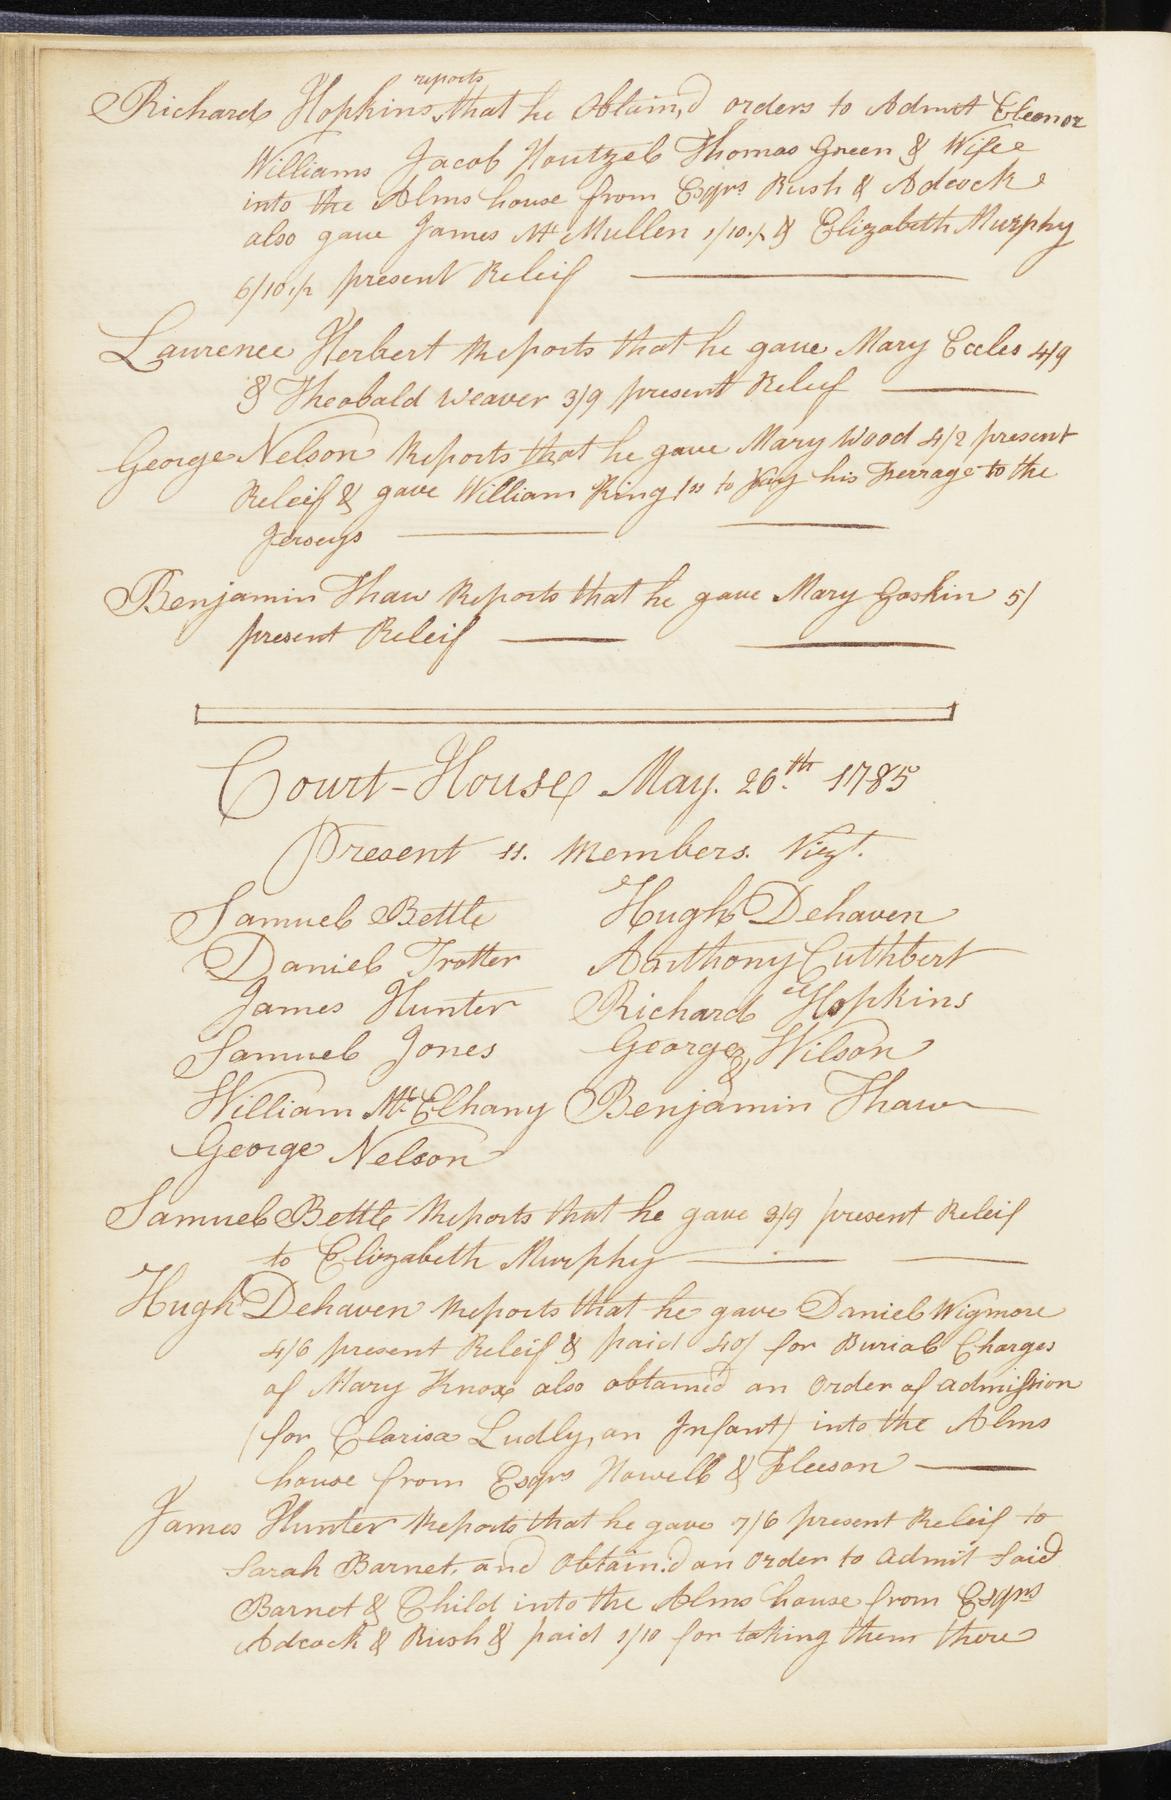 reports
Richard Hopkins ^that he Obtain,d orders to Admit Eleonor
Williams Jacob Houtzel Thomas Green & Wife
into the Alms house from Esqrs Rush & Adcock
also gave James Mc Mullen 1/10½ & Elizabeth Murphy
6/10½ present Releif
Laurence Herbert Reports that he gave Mary Eccles 4/9
& Theobald Weaver 3/9 present Releif
George Nelson Reports that he gave Mary Wood 4/2 present
Releif & gave William King 1s to Pay his Ferrage to the
Jerseys
Benjamin Thaw Reports that he gave Mary Gaskin 5/
present Releif
Court-House May. 26th 1785
Present 11. Members. Vizt.
Samuel Bettle Hugh Dehaven
Daniel Trotter Anthony Cuthbert
James Hunter Richard Hopkins
Samuel Jones George Wilson
&
William Mc Elhany Benjamin Thaw
George Nelson
Samuel Bettle Reports that he gave 3/9 present Releif
to Elizabeth Murphy
Hugh Dehaven Reports that he gave Daniel Wigmore
4/6 present Releif & paid 40/ for Burial Charges
of Mary Knox also obtained an Order of admission
(for Clarisa Ludly, an Infant) into the Alms
house from Esqrs Howell & Fleeson
James Hunter Reports that he gave 7/6 present Releif to
Sarah Barnet, and Obtain'd an Order to Admit Said
Barnet & Child into the Alms house from Esqrs
Adcock & Rush & paid 1/10 for taking them there